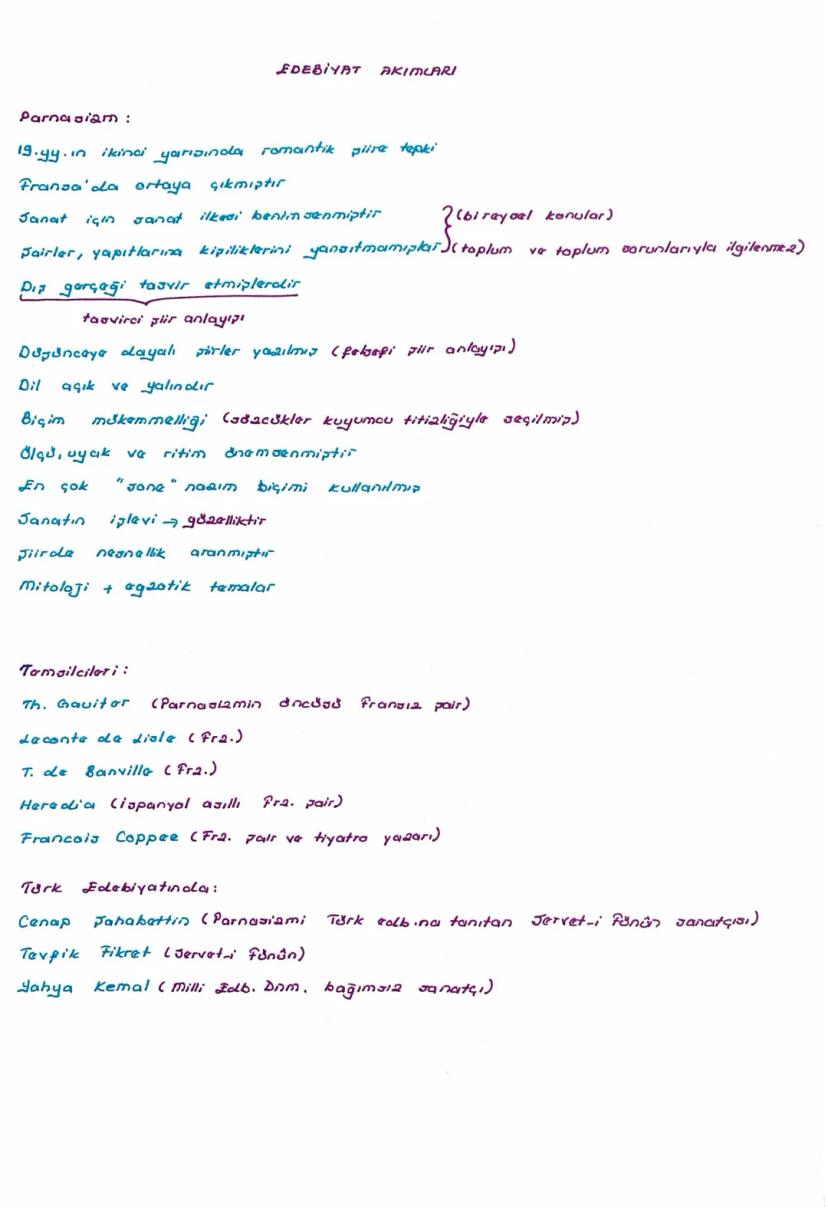 EDEBİYAT AKIMLARI
Parnasizm :
19.yy.ın ikinci yarısında romantik şiire tepki
Fransa'da ortaya çıkmıştır
Sanat için sanat ilkesi benimsenmiştir } (bireysel konular)
Şairler, yapıtlarına kişiliklerini yansıtmamışlar (toplum ve toplum sorunlarıyla ilgilenmez)
Dış gerçeği tasvir etmişlerdir
tasvirci şiir anlayışı
Düşünceye dayalı şiirler yazılmış (felsefi şiir anlayışı)
Dil açık ve yalındır
Biçim mükemmelliği (sözcükler kuyumcu titizliğiyle seçilmiş)
Ölçü, uyak ve ritim önemsenmiştir
En çok "sone" nazım biçimi kullanılmış
Sanatın işlevi → güzelliktir
Şiirde nesnellik aranmıştır
Mitoloji + egzotik temalar
Temsilcileri :
Th. Gautier (Parnasizmin öncüsü Fransız şair)
Leconte de Lisle (Frz.)
T. de Banville (Frz.)
Heredia (İspanyol asıllı Frz. şair)
Francois Coppee (Frz. şair ve tiyatro yazarı)
Türk Edebiyatında :
Cenap Şahabettin (Parnasizmi Türk edb.na tanıtan Servet-i Fünûn sanatçısı)
Tevfik Fikret (Servet-i Fünûn)
Yahya Kemal (Milli Edb. Dnm. bağımsız sanatçı)